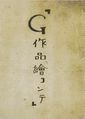 『G作品繪コンテ』